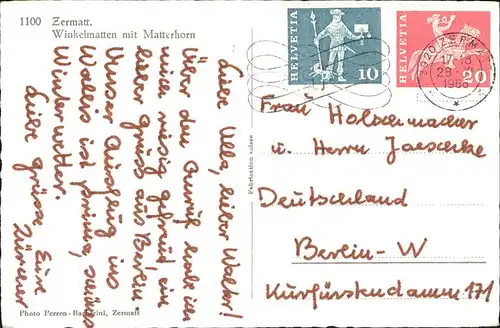 1100 Zermatt.
Winkelmatten mit Matterhorn
HELVETIA
10
HELVETIA
20
3920 ZERMATT
1966
Liebe Ulla, lieber Walter!
Über den Anruf habe ich
mich riesig gefreut, ein
lieber gruss aus Berlin.
Unser Ausflug ins
Wallis ist prima, schönes
Winterwetter.
Liebe grüsse Eure
Zürcher
Fabrication suisse
Frau Holschemacher
u. Herrn Jaeschke
Deutschland
Berlin-W
Kurfürstendamm 171
Photo Perren-Barberini, Zermatt